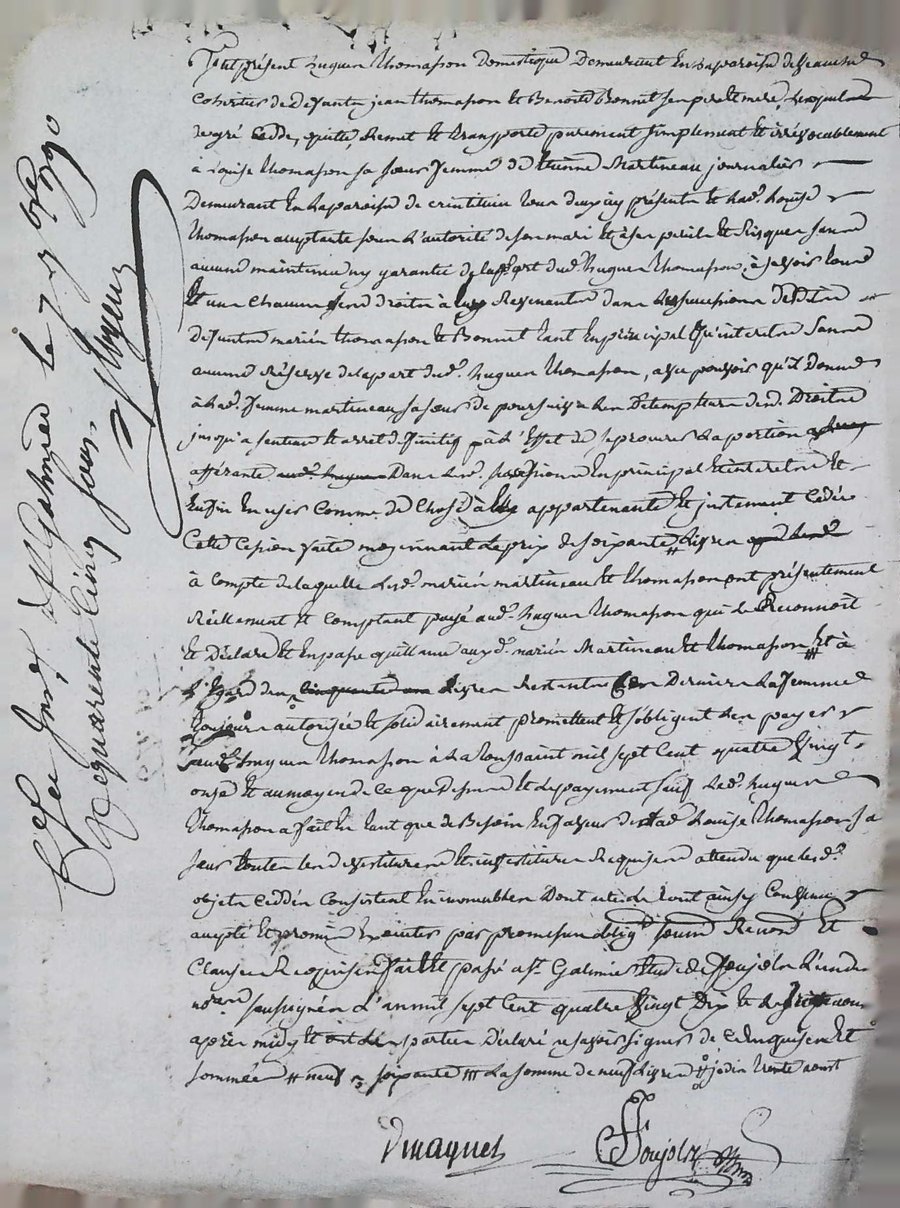 fut présent hugues thomasson domestique demeurant en la paroisse de
cohéritier de défunts jean thomasson et Benoite Bonnet ses pere et mere, lequel
de gré cedde, quitte Remet et transporte purement simplement et irrévocablement
à Louise thomasson sa sœur femme de Etienne Martineau journalier
Demeurant en la paroisse de tous deux icy présents et lad. Louise
thomasson acceptante sous l'autorité de son mari et à ses perils et Risques sans
aucune maintenue ny garantie de la part dud. hugues thomasson, à savoir tous
et un chacuns ses droits à luy Revenants dans les successions desdits
defunts mariés thomasson et Bonnet tant en principal qu'interets sans
aucune Réserve de la part dud. hugues thomasson, avec pouvoir qu'il Donne
à lad. femme martineau sa sœur de poursuivre lesd. Droits
jusqu'a sentence et arret définitif à l'Effet de se procurer la portion
afférante Dans lesd. successions en principal et interets et
Enfin en user comme de chose à luy appartenante et justement cédée
Cette cession faite moyennant le prix de soixante # Livres
à compte de laquelle lesd. mariés martineau et thomasson ont présentement
Réellement et comptant payé aud. hugues thomasson qui le Reconnoit
et Déclare et en passe quittance auxd. mariés Martineau et thomasson # et à
l'égard des Livres Restants ces Derniers la femme
toujours autorisée et solidairement promettent et s'obligent les payer
aud. hugues thomasson à la toussaint mil sept cent quatre vingt
onze et au moyen de ce que Dessus et de payement sauf led. hugues
thomasson a fait en tant que de Besoin en faveur de lad. Louise thomasson sa
sœur toutes les devestitures et investitures Requises attendu que lesd.
objets ceddés consistent en immeubles Dont acte le tout ainsy convenu
accepté et promis exécuter par promesse oblig. soum. Renond. et
clauses Requises fait et passé a St. Galmier Etude de Soujols l'un des
nores. soussignés L'an mil sept cent quatre vingt Dix et le
après midy et les parties Déclaré ne savoir signer de ce Enquises et
sommées # neuf soixante ### La somme de neuf Livres # jedis trente aoust
Dmagnet
Soujols
Reçu
quarante cinq sous.
St Galmier le 7 7bre 1790